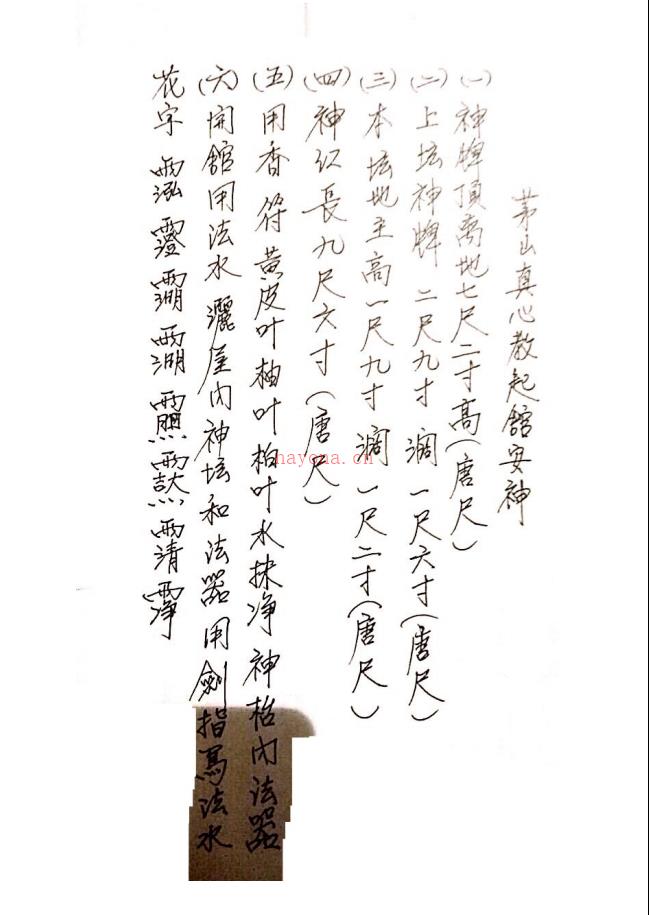 茅山真心教起舘安神
(一)神牌頂离地七尺二寸高(唐尺)
(二)上坛神牌 二尺九寸 濶一尺六寸(唐尺)
(三)本坛地主高一尺九寸 濶一尺二寸(唐尺)
(四)神红長九尺六寸(唐尺)
(五)用香 符 黄皮叶 柚叶 柏叶水抹净 神枱內法器
(六)開舘用法水 灑屋內神坛和法器 用劍指寫法水
花字
hayona.cn